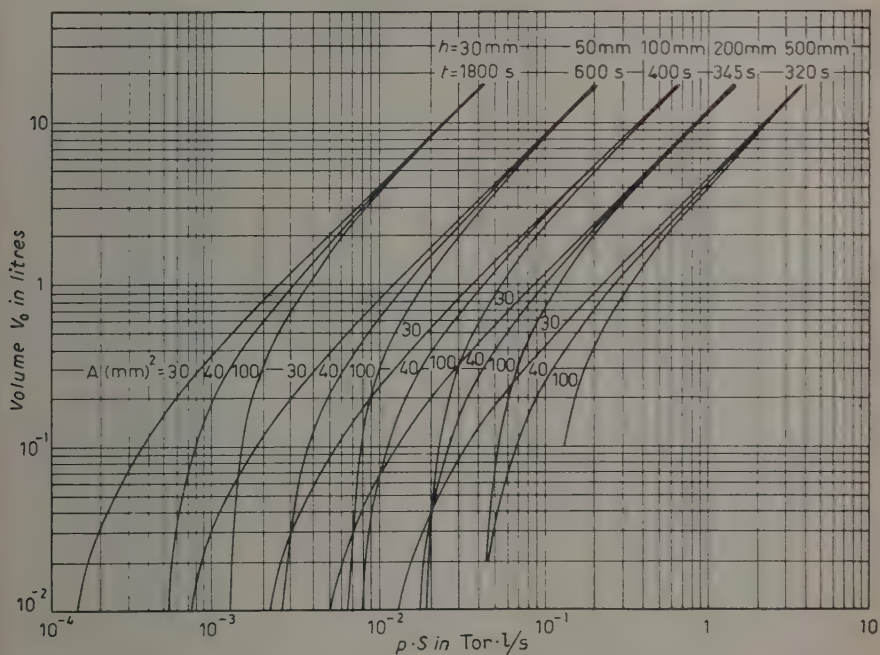 h=30mm 50mm 100mm 200mm 500mm
t=1800 s 600 s 400 s 345 s 320 s
10
1
10⁻¹
10⁻²
Volume V₀ in litres
30
30
30
A (mm)²=30 40 100 30 40 100 40 100 40 100 40 100
10⁻⁴ 10⁻³ 10⁻² 10⁻¹ 1 10
p·S in Tor·l/s